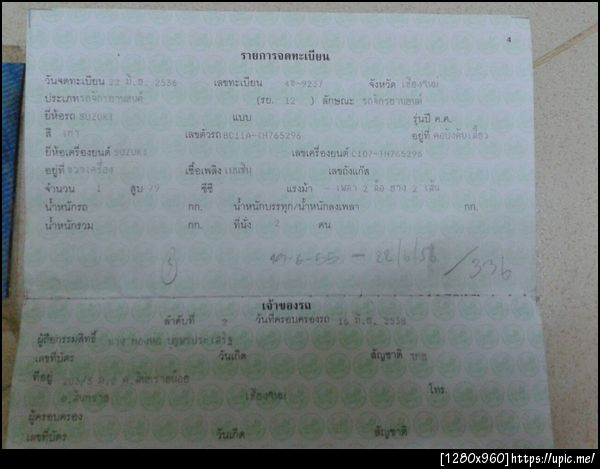 4
รายการจดทะเบียน
วันจดทะเบียน 22 มิ.ย. 2536 เลขทะเบียน 9237 จังหวัด เชียงใหม่
ประเภทรถจักรยานยนต์ (รย. 12 ) ลักษณะ รถจักรยานยนต์
ยี่ห้อรถ SUZUKI แบบ รุ่นปี ค.ศ.
สี เทา เลขตัวรถ BC11A-TH765296 อยู่ที่ คอบังคับเลี้ยว
ยี่ห้อเครื่องยนต์ SUZUKI เลขเครื่องยนต์ C107-TH765296
อยู่ที่ ขวาเครื่อง เชื้อเพลิง เบนซิน เลขถังแก๊ส
จำนวน 1 สูบ 79 ซีซี แรงม้า - เพลา 2 ล้อ ยาง 2 เส้น
น้ำหนักรถ กก. น้ำหนักบรรทุก/น้ำหนักลงเพลา กก.
น้ำหนักรวม กก. ที่นั่ง 2 คน
22/6/56 /336
เจ้าของรถ
ลำดับที่ 2 วันที่ครอบครองรถ 16 มิ.ย. 2538
ผู้ถือกรรมสิทธิ์ นาง
เลขที่บัตร วันเกิด สัญชาติ ไทย
ที่อยู่ 203/3 ต.สันทรายน้อย
อ.สันทราย เชียงใหม่ โทร.
ผู้ครอบครอง
เลขที่บัตร วันเกิด สัญชาติ
[1280x960]https://upic.me/